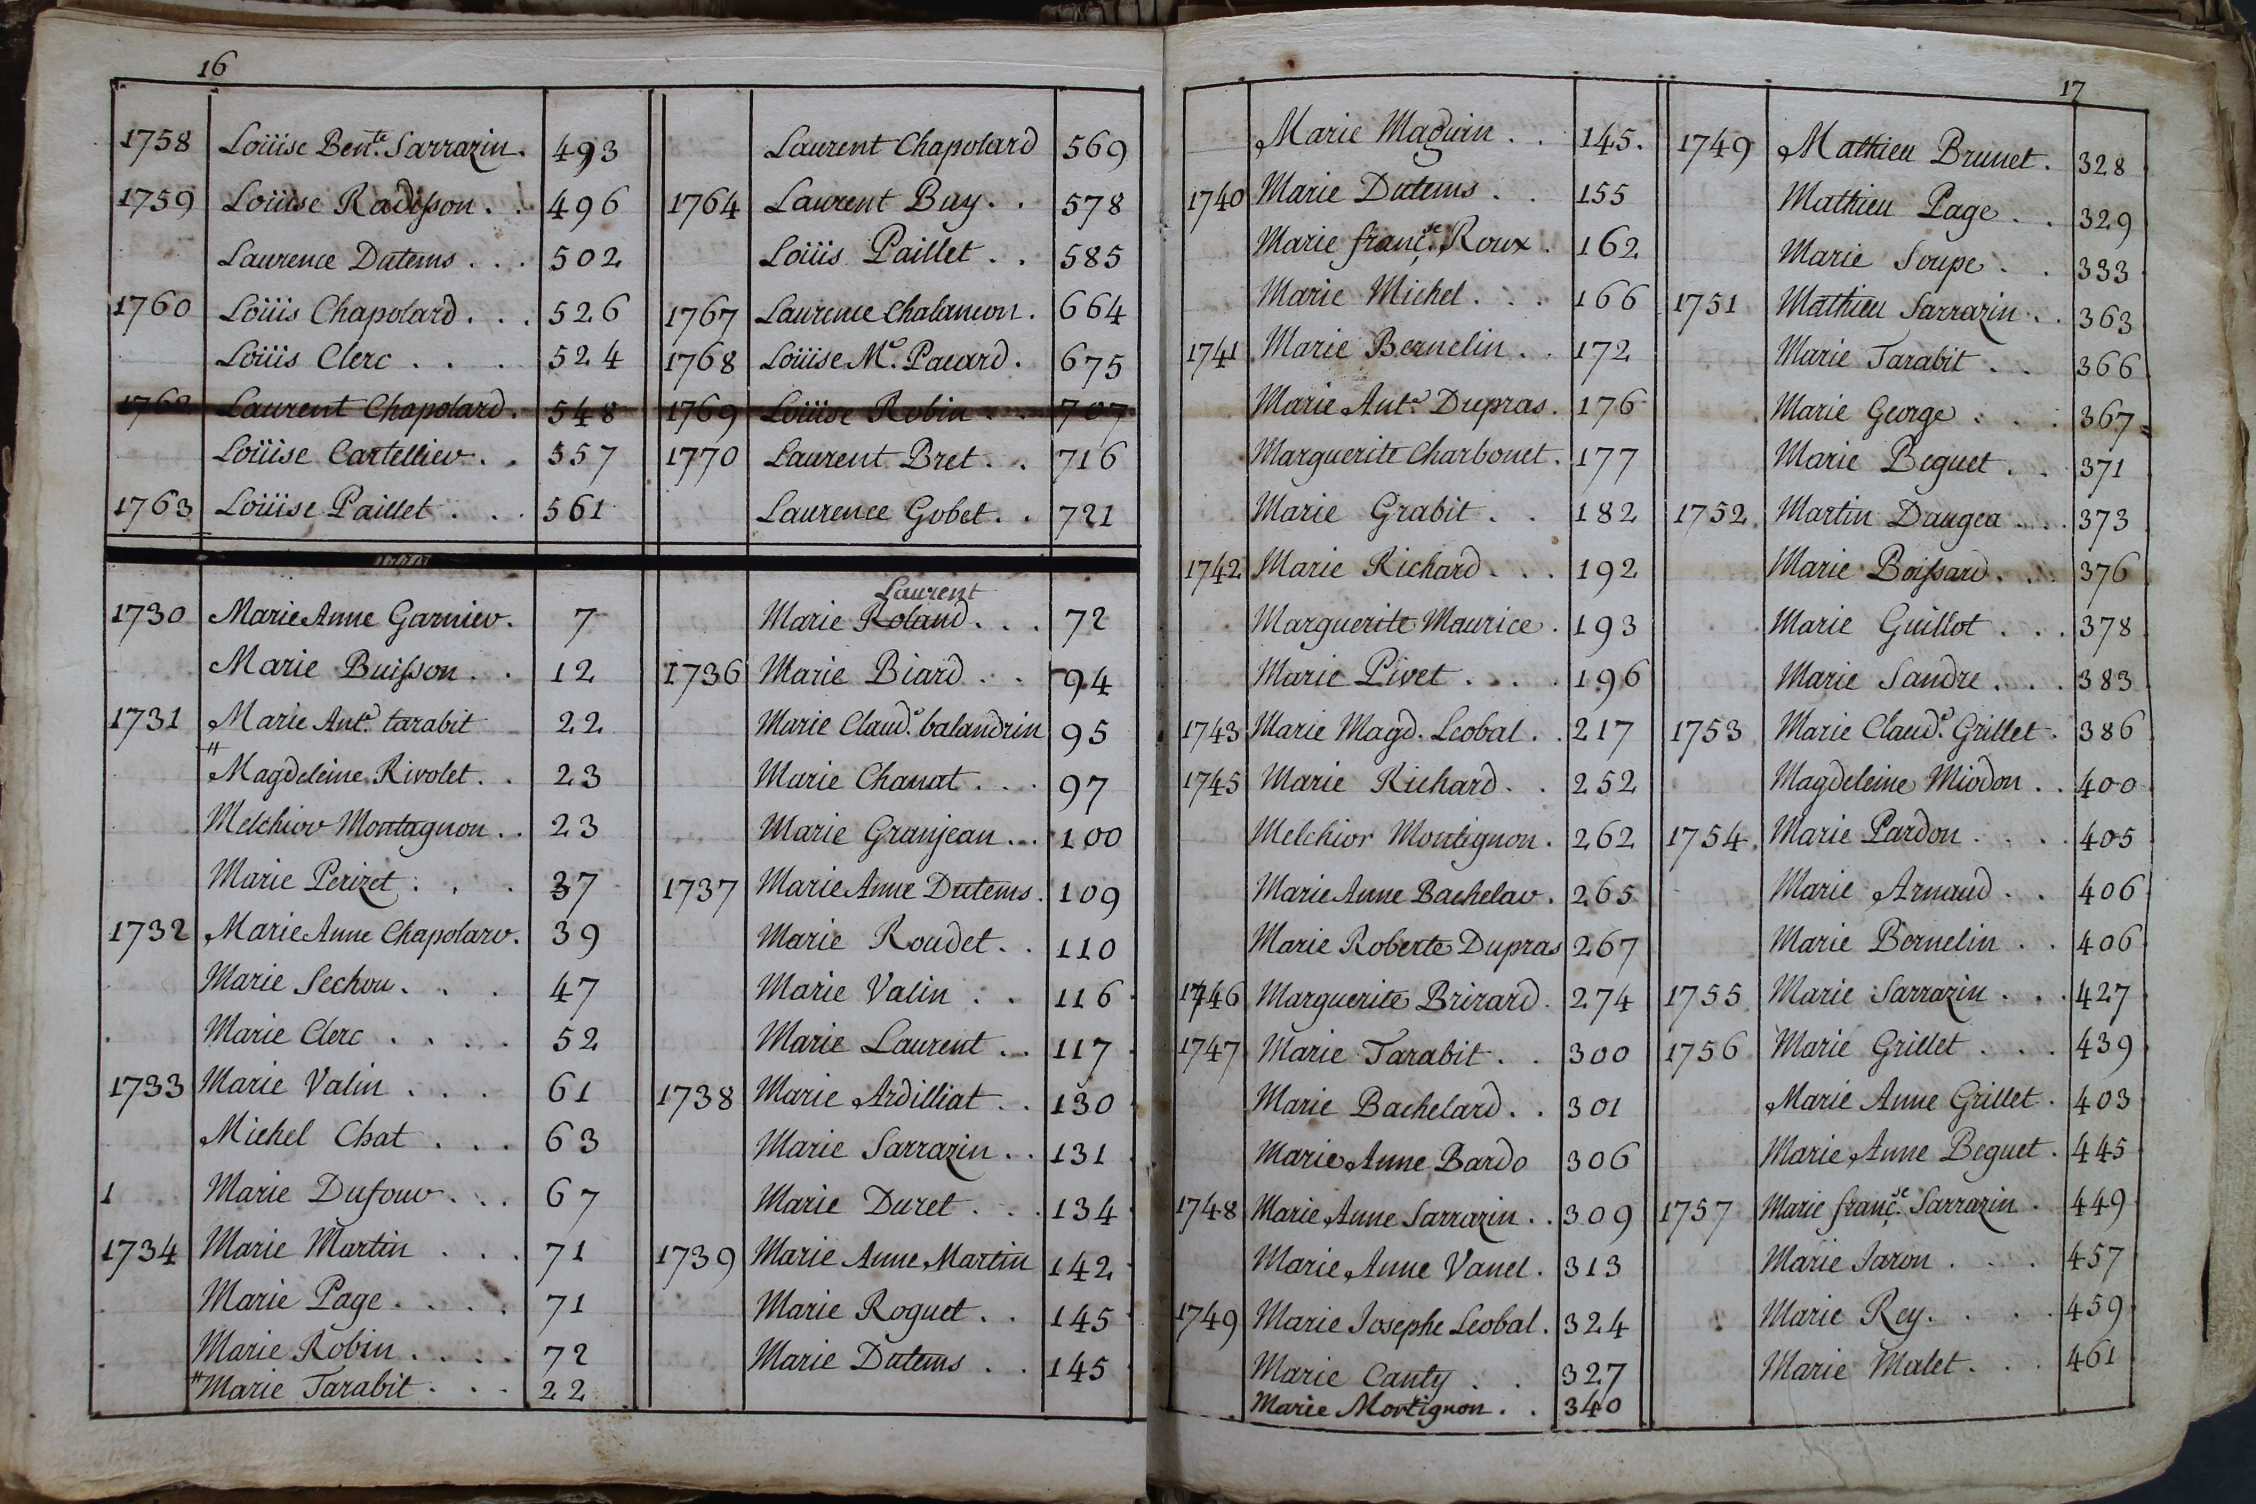 16
1758 Loüise Ben.te Sarrazin. 493
1759 Loüise Radisson. . 496
Laurence Dutems . . . 502
1760 Loüis Chapolard. . . 526
Loüis Clerc . . . 524
1762 Laurent Chapolard. 548
Loüise Cartellier. . 557
1763 Loüise Paillet . . . 561
Laurent Chapolard 569
1764 Laurent Buy. . 578
Loüis Paillet . . 585
1767 Laurence Chalancon. 664
1768 Loüise M.e Pacard. 675
1769 Loüise Robin . . 707
1770 Laurent Bret. . . 716
Laurence Gobet. . 721
1730 Marie Anne Garnier. 7
Marie Buisson. . 12
1731 Marie Ant.e tarabit 22
" Magdeleine Rivolet. . 23
Melchior Montagnon. . 23
Marie Perizet . . . 37
1732 Marie Anne Chapolard. 39
Marie Sechou. . . 47
Marie Clerc . . . . 52
1733 Marie Valin . . . 61
Michel Chat . . . 63
1 Marie Dufour. . . 67
1734 Marie Martin . . . 71
Marie Page. . . . 71
Marie Robin. . . . 72
" Marie Tarabit. . . 22
Laurent
Marie Roland. . . 72
1736 Marie Biard. . . 94
Marie Claud.e balandrin 95
Marie Chanat. . . 97
Marie Granjean. . . 100
1737 Marie Anne Dutems. 109
Marie Roudet. . 110
Marie Valin . . 116
Marie Laurent . . 117
1738 Marie Ardilliat. . 130
Marie Sarrazin. . 131
Marie Duret. . . 134
1739 Marie Anne Martin 142
Marie Roguet. . 145
Marie Dutems . . 145
17
Marie Maguin . . 145.
1740 Marie Dutems . . 155
Marie franç.se Roux. 162
Marie Michel. . . 166
1741 Marie Bernelin. . 172
Marie Ant.e Dupras. 176
Marguerite Charbonet. 177
Marie Grabit. . 182
1742 Marie Richard. . . 192
Marguerite Maurice. 193
Marie Pivet. . . . 196
1743 Marie Magd. Leobal. . 217
1745 Marie Richard. . 252
Melchior Montignon. 262
Marie Anne Bachelar. 265
Marie Roberte Dupras 267
1746 Marguerite Brizard. 274
1747 Marie Tarabit. . 300
Marie Bachelard. . 301
Marie Anne Bardo 306
1748 Marie Anne Sarrazin. . 309
Marie Anne Vanel. 313
1749 Marie Josephe Leobal. 324
Marie Canty . . 327
Marie Montignon. . 340
1749 Mathieu Brunet. 328
Mathieu Page. . 329
Marie Soupe. . 333
1751 Mathieu Sarrazin. . 363
Marie Tarabit. . 366
Marie George. . . 367
Marie Beguet. . 371
1752. Martin Daugea. . . 373
Marie Boissard. . . 376
Marie Guillot. . . 378
Marie Sandre. . . 383
1753 Marie Claud.e Grillet. 386
Magdeleine Miodon. . 400
1754. Marie Pardon. . . . 405
Marie Arnaud. . . 406
Marie Bernelin. . 406
1755 Marie Sarrazin. . . 427
1756 Marie Grillet. . . 439
Marie Anne Grillet. 403
Marie Anne Beguet. 445
1757 Marie franç.se Sarrazin. 449
Marie Jaron. . . 457
Marie Rey. . . . 459
Marie Malet. . . 461